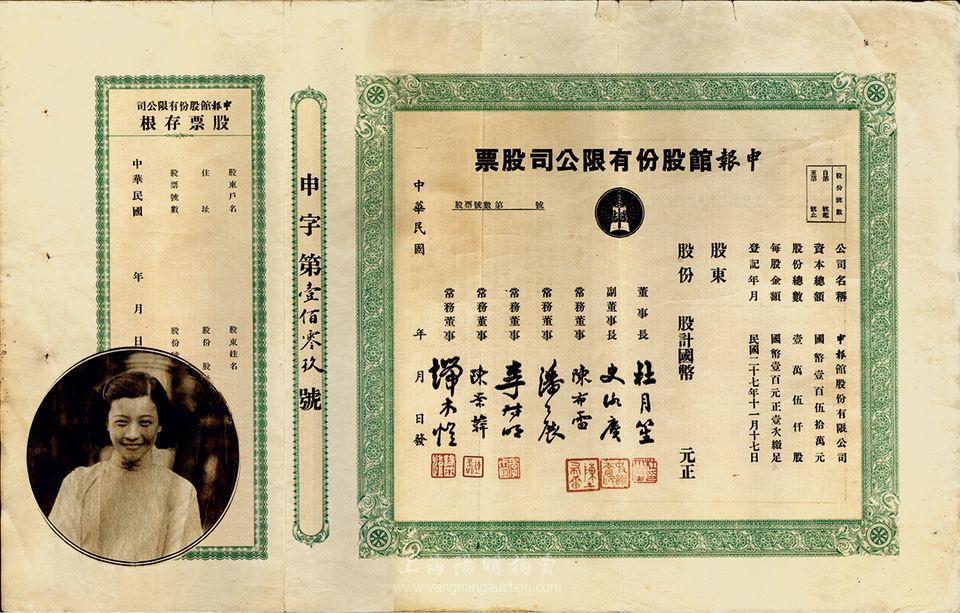 申報館股份有限公司股票
股份號數
自第 號起
至第 號止
股票號數第 號
公司名稱 申報館股份有限公司
資本總額 國幣壹百伍拾萬元
股份總數 壹萬伍仟股
每股金額 國幣壹百元正壹次繳足
登記年月 民國二十七年十一月十七日
股東
股份 股計國幣 元正
董事長 杜月笙
副董事長 史詠賡
常務董事 陳布雷
常務董事 潘公展
常務董事 李叔明
常務董事 陳景韓
常務董事 端木愷
中華民國 年 月 日發
申字第壹佰零玖號
申報館股份有限公司
股票存根
股東戶名 股東姓名
住址 股份股
股票號數 股份號
中華民國 年 月 日
上海陽明拍賣
www.yangmingauction.com